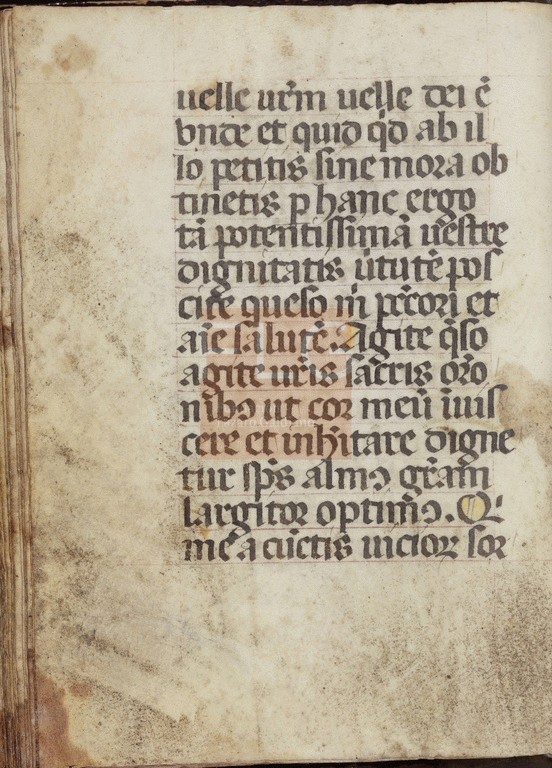 uelle ur̄m uelle dei ē
vnde et quid q̄d ab il
lo petitis sine mora ob
tinetis p hanc ergo
tā potentissimā uestre
dignitatis ūtutē pos
cite queso m̄ pctori et
aīe salutē. Agite q̄so
agite ur̄is sacris oro
nibꝰ ut cor meū īuis
cere et inhītare digne
tur sp̄s almꝰ gr̄am
largitor optimꝰ. Q'
me a cūctis uicioꝝ sor